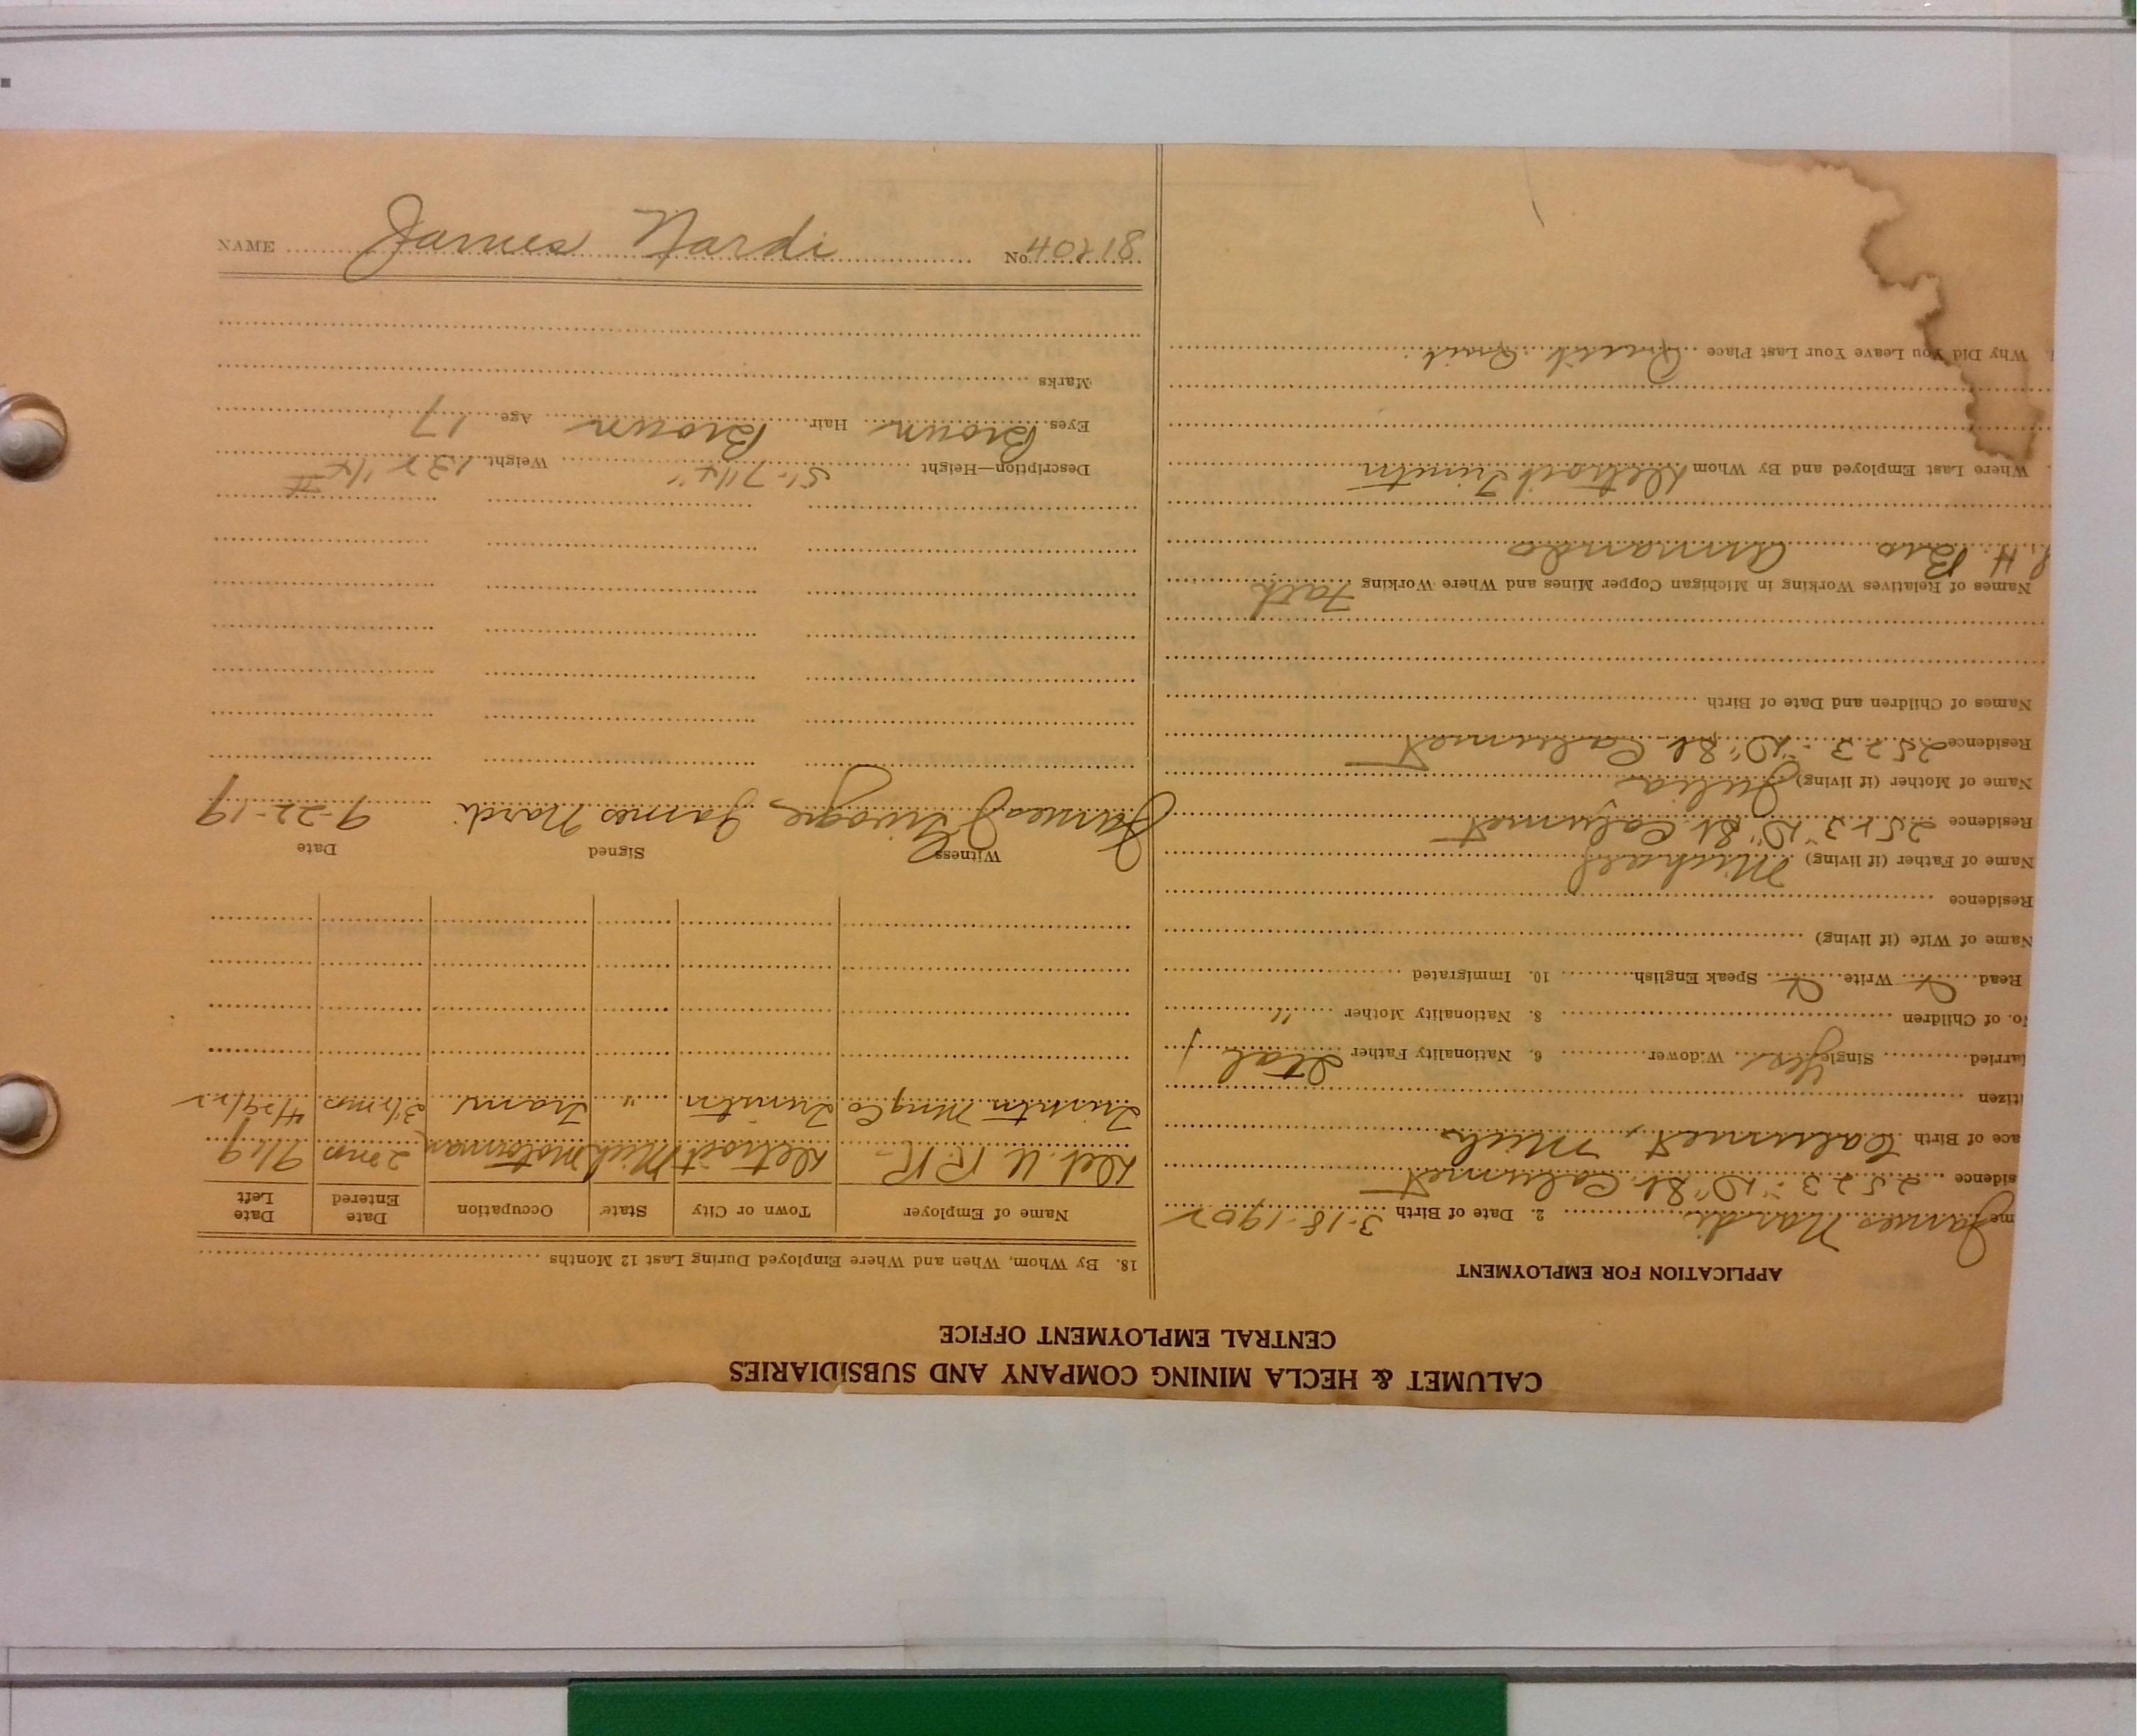 CALUMET & HECLA MINING COMPANY AND SUBSIDIARIES
CENTRAL EMPLOYMENT OFFICE
APPLICATION FOR EMPLOYMENT
me James Nardi 2. Date of Birth 3-18-1902
sidence 2523 "D" St. Calumet
ace of Birth Calumet, Mich
itizen
arried Single Yes Widower 6. Nationality Father Ital
o. of Children 8. Nationality Mother "
Read Write Speak English 10. Immigrated
Name of Wife (if living)
Residence
Name of Father (if living) Michael
Residence 2523 "D" St. Calumet
Name of Mother (if living) Julia
Residence 2523 "D" St. Calumet
Names of Children and Date of Birth
Names of Relatives Working in Michigan Copper Mines and Where Working Fath
Bro Armando
Where Last Employed and By Whom Detroit Trimtn
Why Did You Leave Your Last Place Quit Quit
18. By Whom, When and Where Employed During Last 12 Months
Name of Employer Town or City State Occupation Date Entered Date Left
Det. U. R.R. Detroit Mich Motorman 2 mos 9/19
Mng Co " Tram 3 1/2 mos
Witness Signed Date
James J James Nardi 9-22-19
Description—Height 5'-7 1/4" Weight 132 1/4 #
Eyes Brown Hair Brown Age 17
Marks
NAME James Nardi No. 40218